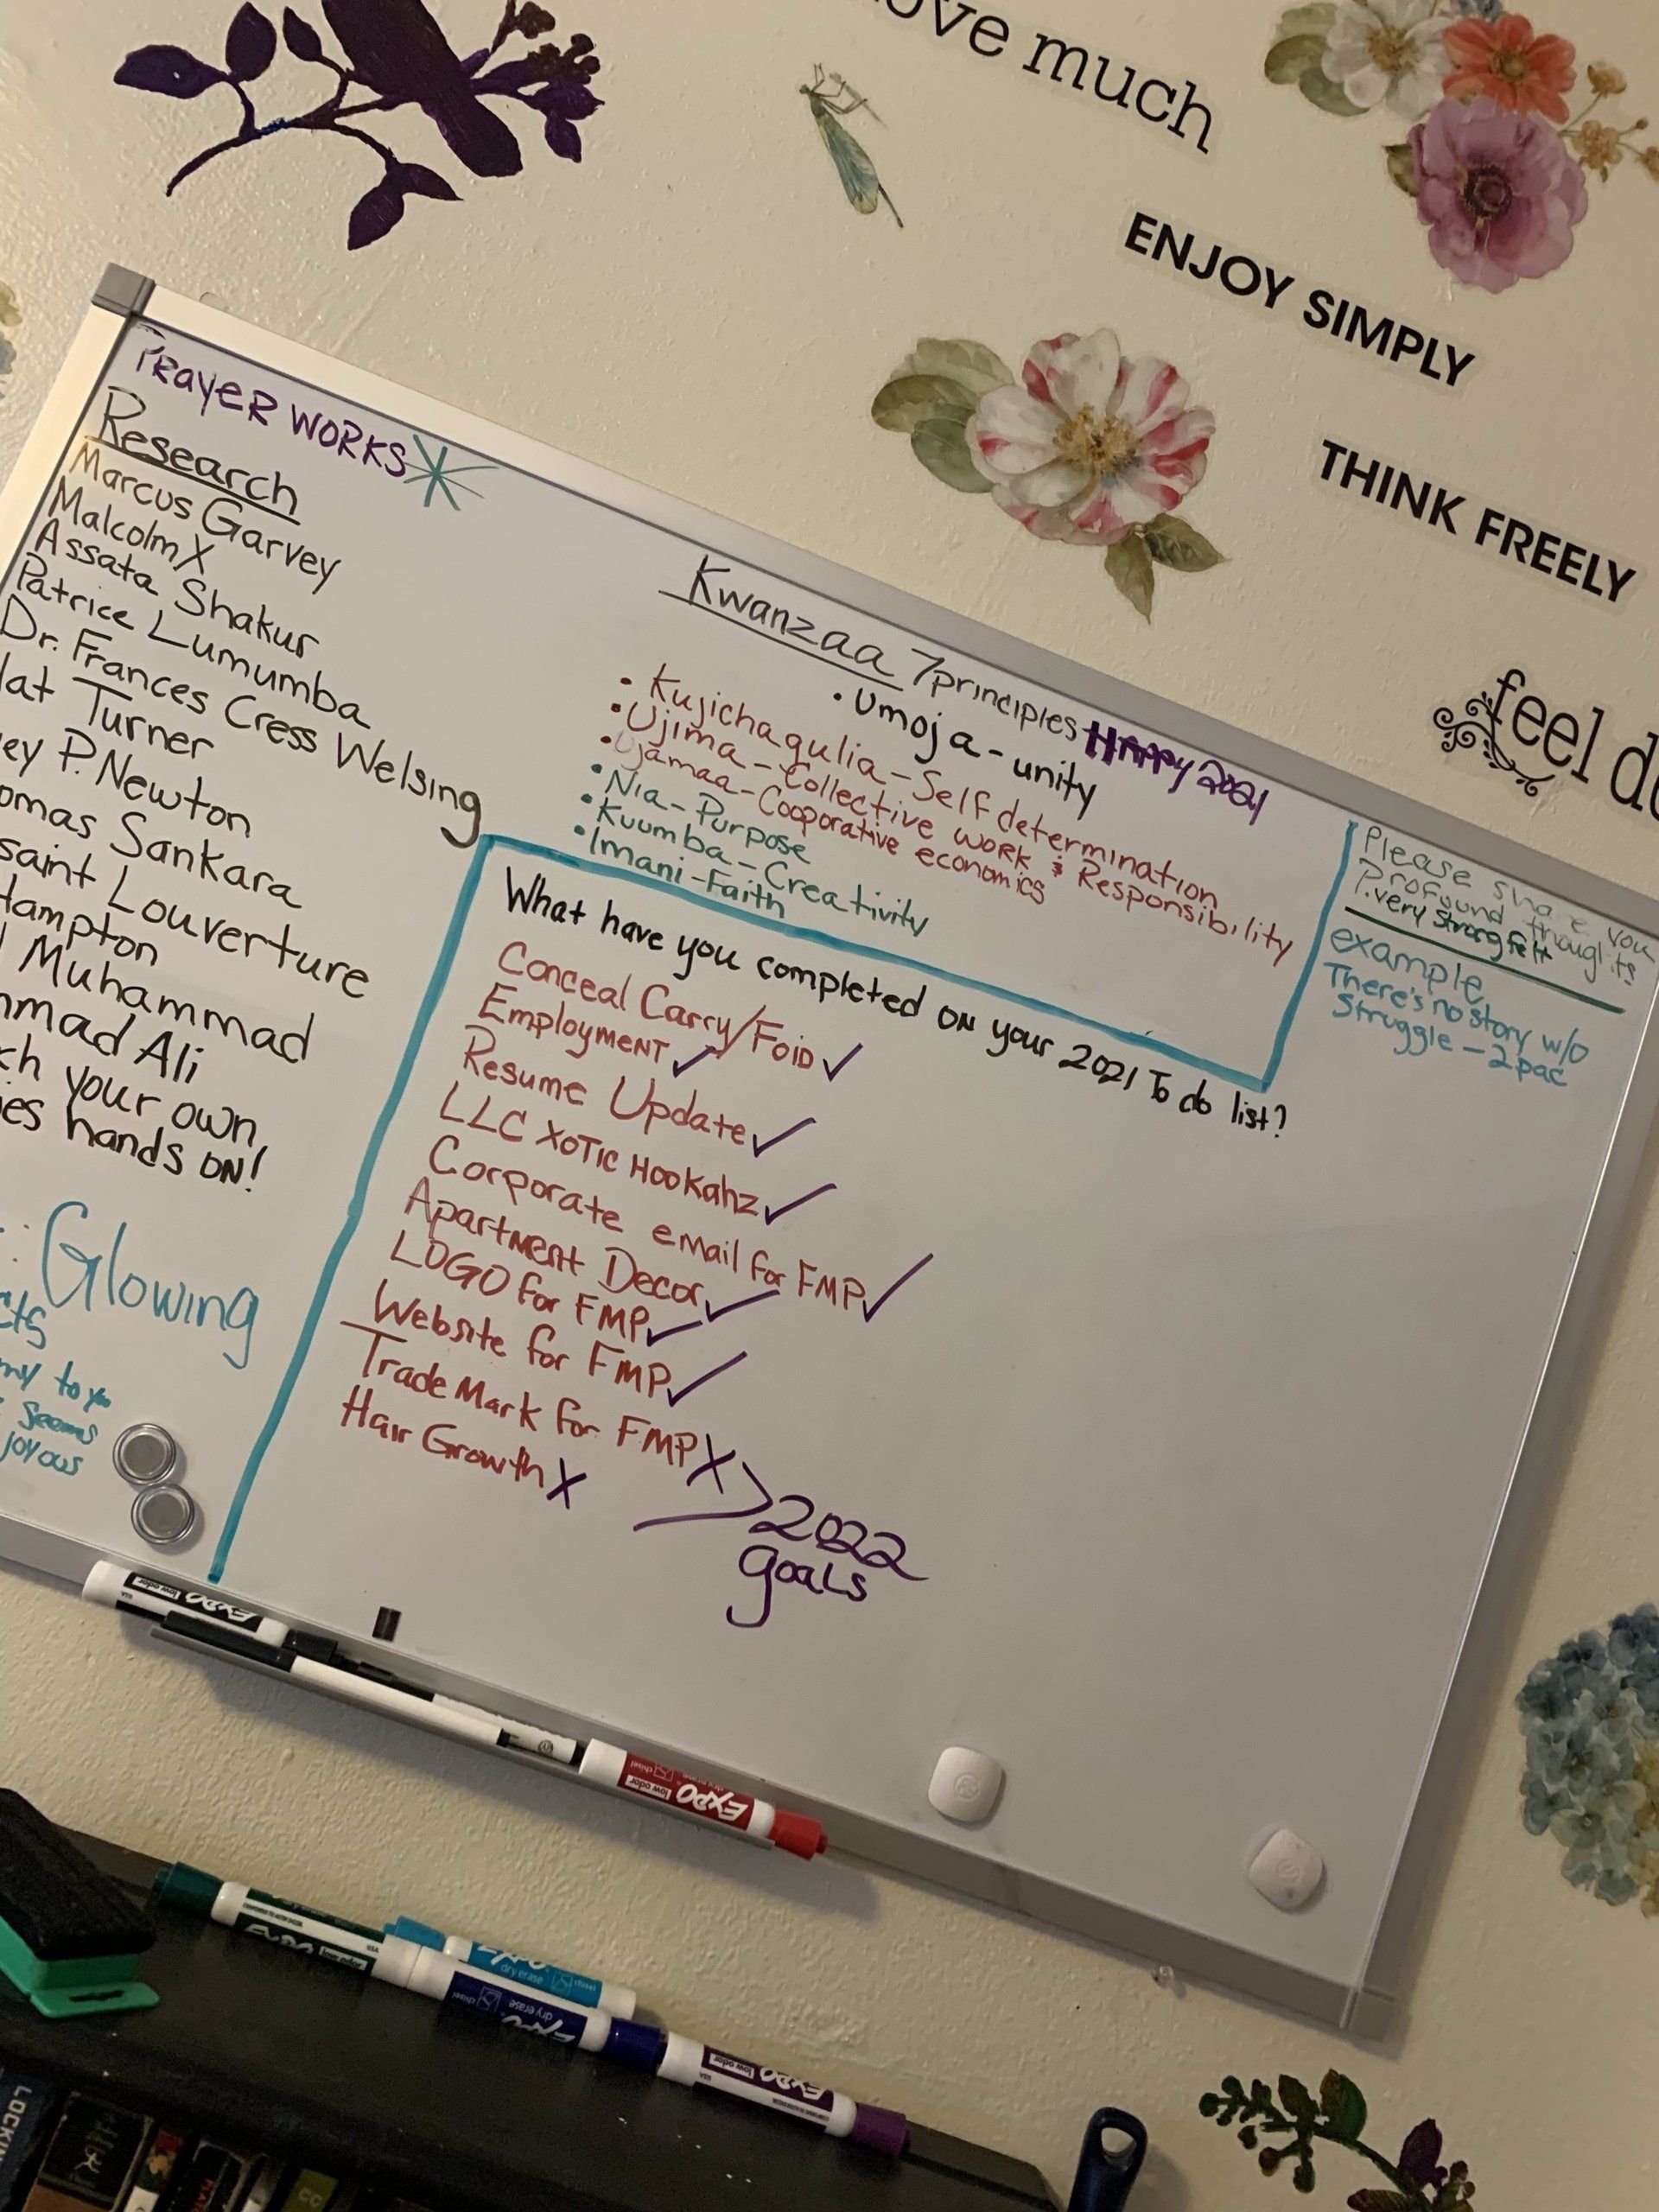 ove much
ENJOY SIMPLY
THINK FREELY
feel d
PRAYER WORKS
Research
Marcus Garvey
Malcolm X
Assata Shakur
Patrice Lumumba
Dr. Frances Cress Welsing
Nat Turner
ey P. Newton
omas Sankara
saint Louverture
Hampton
Muhammad
mmad Ali
ch your own
ies hands ON!
: Glowing
cts
my to you
seems
joyous
Kwanzaa 7 principles HAPPY 2021
• Umoja - unity
• Kujichagulia - Self determination
• Ujima - Collective work & Responsibility
• Ujamaa - Cooperative economics
• Nia - Purpose
• Kuumba - Creativity
• Imani - Faith
What have you completed ON your 2021 To do list?
Conceal Carry/FOID ✓
Employment ✓
Resume Update ✓
LLC XOTIC HOOKahz ✓
Corporate email for FMP ✓
Apartment Decor ✓
LOGO for FMP ✓
Website for FMP ✓
Trade Mark for FMP X
Hair Growth X
> 2022
goals
Please share you
Profound thoughts
P.very strong felt
example
There's no story w/o
struggle - 2pac
EXPO
low odor
EXPO
low odor
chisel
EXPO
low odor
USA
dry erase
chisel
EXPO
dry erase
chisel
EXPO
low odor
USA
LOCKI